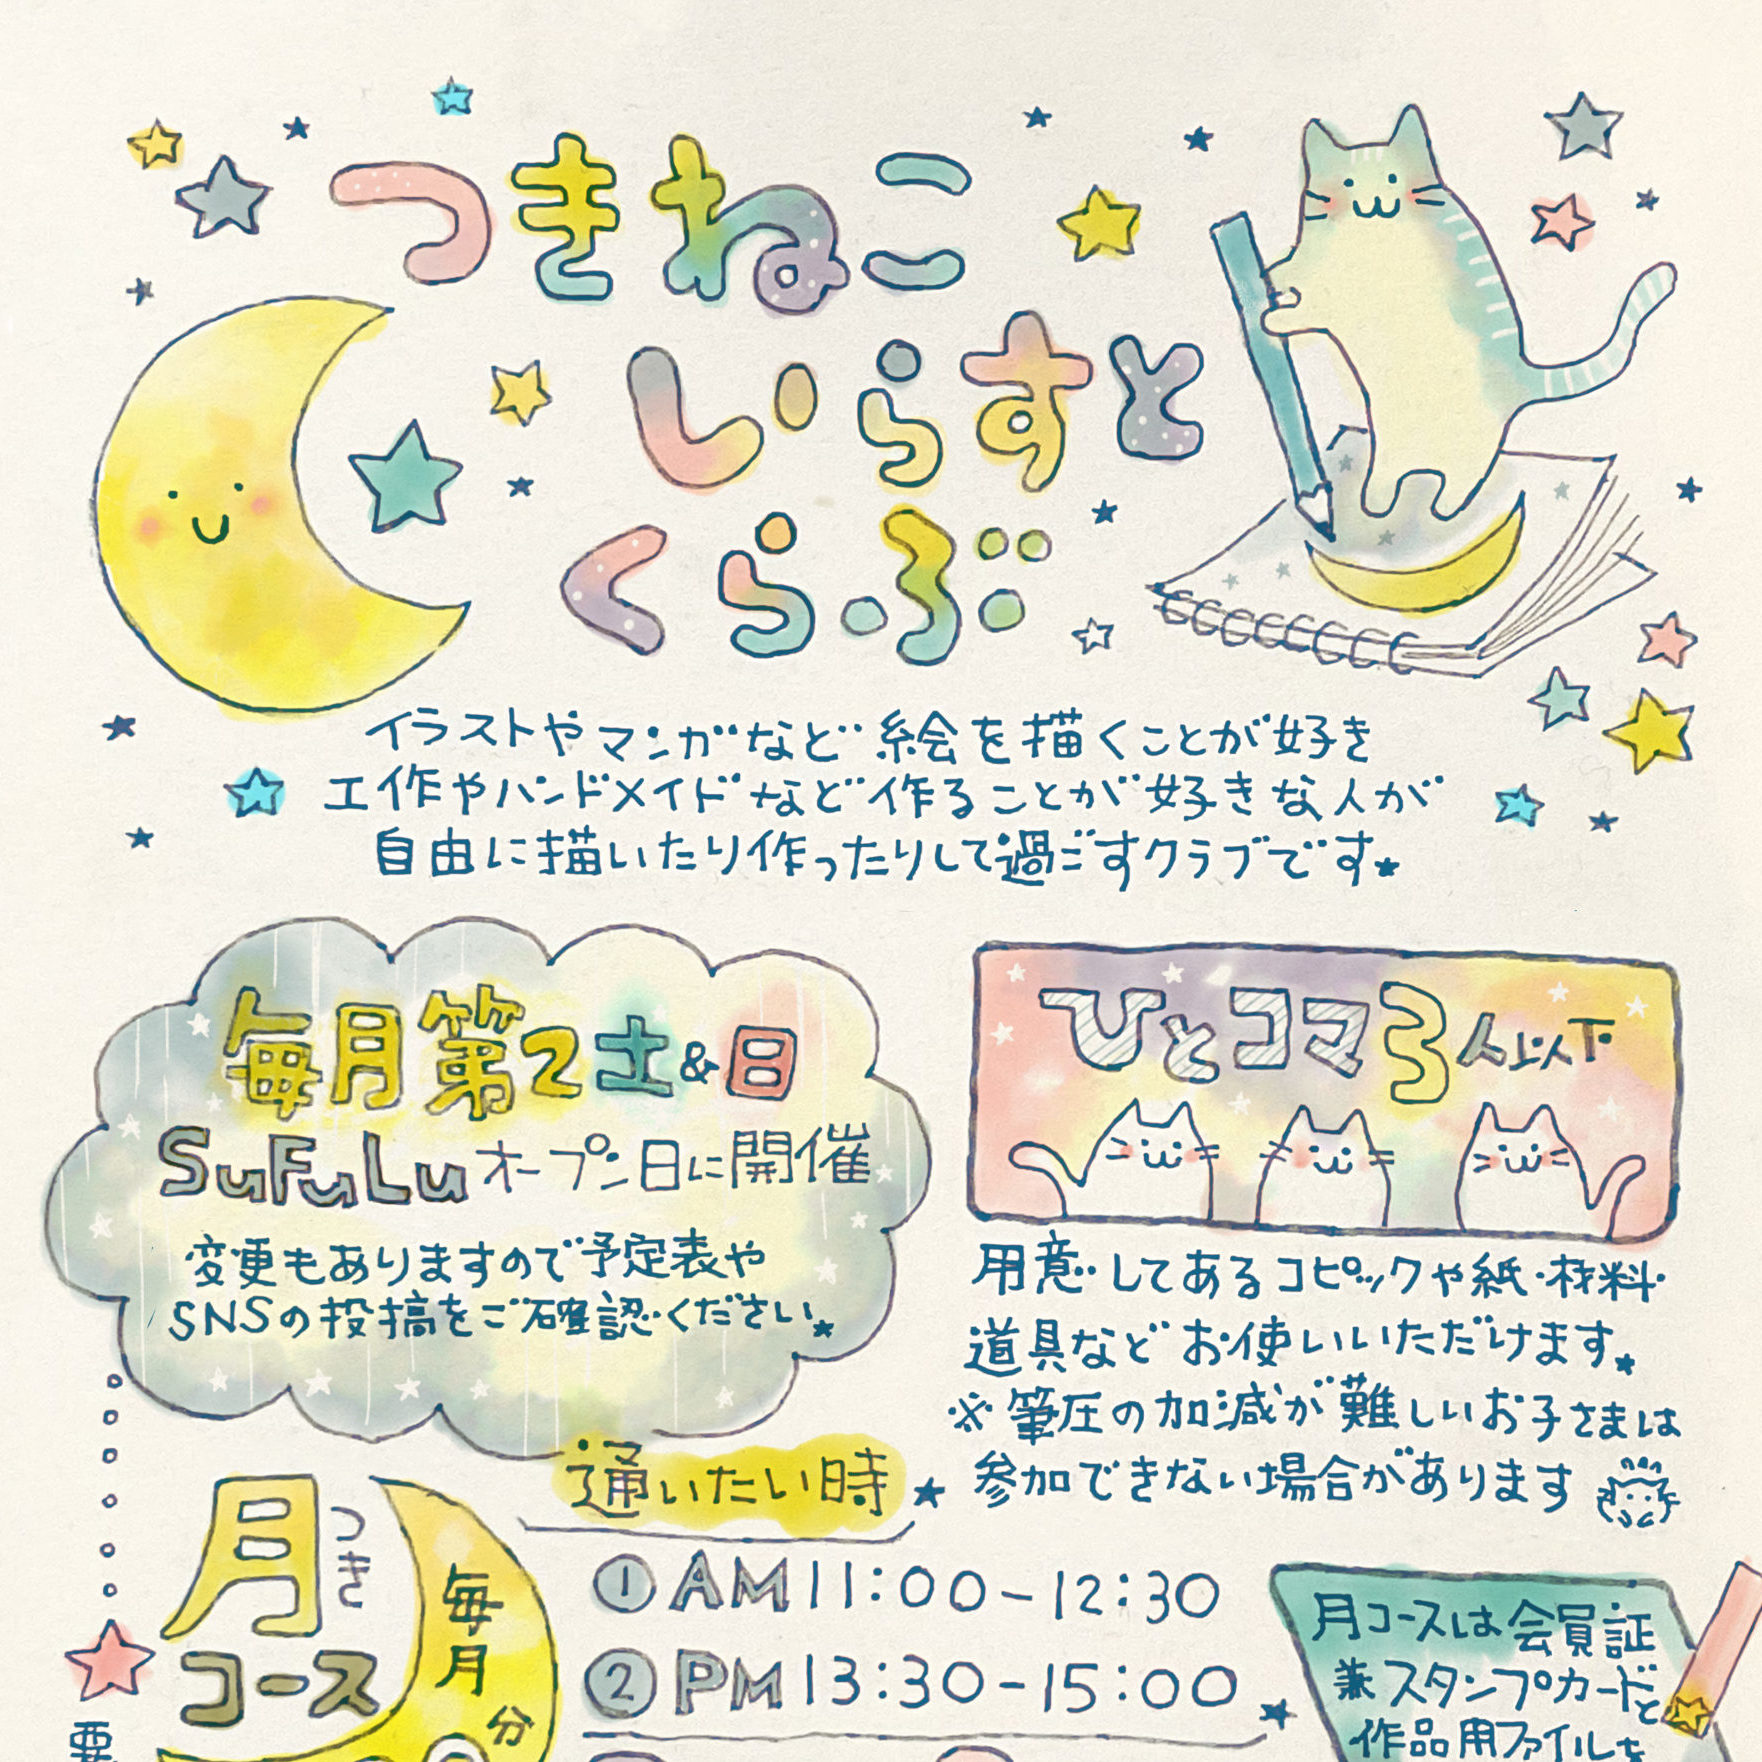 つきねこ
いらすと
くらぶ
イラストやマンガなど絵を描くことが好き
工作やハンドメイドなど作ることが好きな人が
自由に描いたり作ったりして過ごすクラブです★
毎月第2土&日
SuFuLuオープン日に開催
変更もありますので予定表や
SNSの投稿をご確認ください★
ひとコマ3人以下
用意してあるコピックや紙・材料・
道具などお使いいただけます★
※筆圧の加減が難しいお子さまは
参加できない場合があります
通いたい時★
月コース
つき
毎月
分
①AM11:00-12:30
②PM13:30-15:00
月コースは会員証
兼スタンプカードと
作品用ファイルを
要